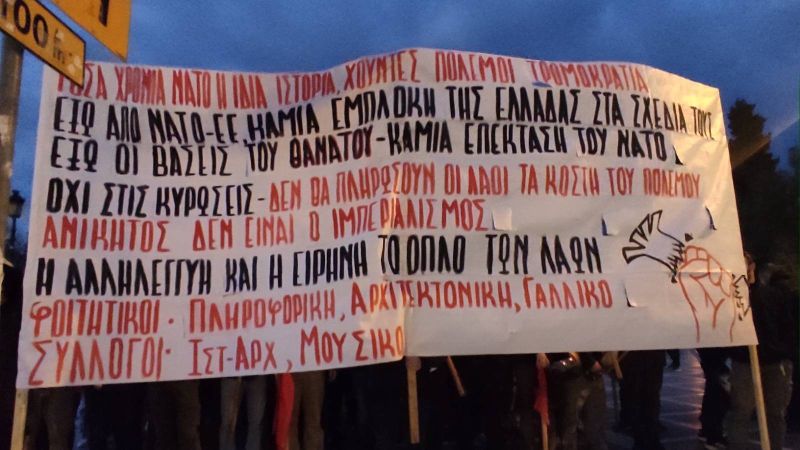 100 m
ΤΟΣΑ ΧΡΟΝΙΑ ΝΑΤΟ Η ΙΔΙΑ ΙΣΤΟΡΙΑ, ΧΟΥΝΤΕΣ ΠΟΛΕΜΟΙ ΤΡΟΜΟΚΡΑΤΙΑ
ΕΞΩ ΑΠΟ ΝΑΤΟ-ΕΕ, ΚΑΜΙΑ ΕΜΠΛΟΚΗ ΤΗΣ ΕΛΛΑΔΑΣ ΣΤΑ ΣΧΕΔΙΑ ΤΟΥΣ
ΕΞΩ ΟΙ ΒΑΣΕΙΣ ΤΟΥ ΘΑΝΑΤΟΥ-ΚΑΜΙΑ ΕΠΕΚΤΑΣΗ ΤΟΥ ΝΑΤΟ
ΟΧΙ ΣΤΙΣ ΚΥΡΩΣΕΙΣ-ΔΕΝ ΘΑ ΠΛΗΡΩΣΟΥΝ ΟΙ ΛΑΟΙ ΤΑ ΚΟΣΤΗ ΤΟΥ ΠΟΛΕΜΟΥ
ΑΝΙΚΗΤΟΣ ΔΕΝ ΕΙΝΑΙ Ο ΙΜΠΕΡΙΑΛΙΣΜΟΣ
Η ΑΛΛΗΛΕΓΓΥΗ ΚΑΙ Η ΕΙΡΗΝΗ ΤΟ ΟΠΛΟ ΤΩΝ ΛΑΩΝ
ΦΟΙΤΗΤΙΚΟΙ· ΠΛΗΡΟΦΟΡΙΚΗ, ΑΡΧΙΤΕΚΤΟΝΙΚΗ, ΓΑΛΛΙΚΟ
ΣΥΛΛΟΓΟΙ· ΙΣΤ-ΑΡΧ, ΜΟΥΣΙΚΟ